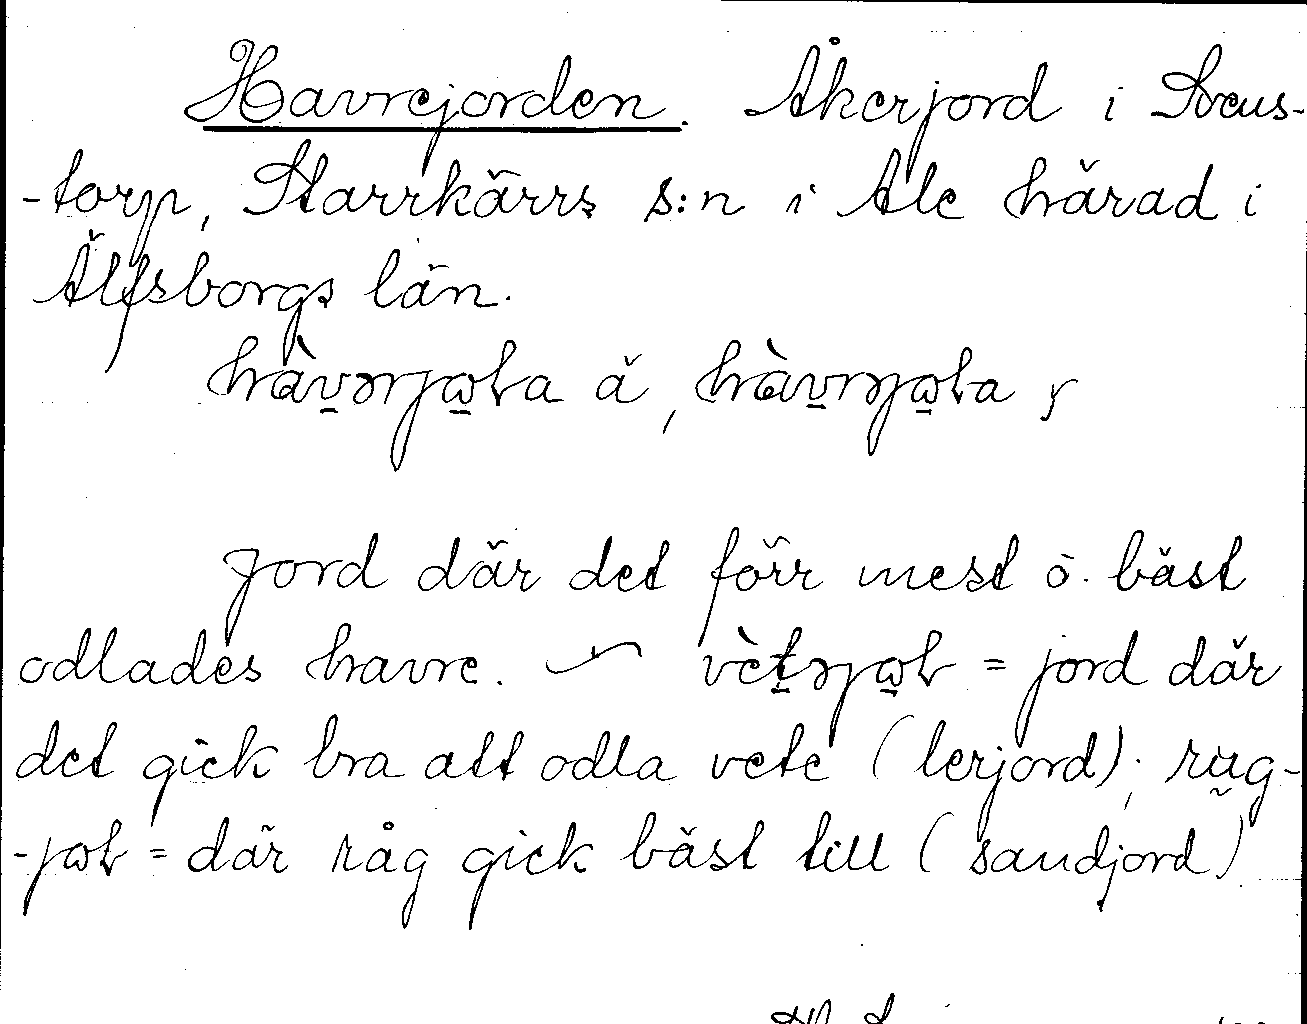 Havrejorden. Åkerjord i
-torp, Starrkärrs s:n i Ale härad i
Älfsborgs län.
ä,
Jord där det förr mest o. bäst
odlades havre. = jord där
det gick bra att odla vete (lerjord);
= där råg gick bäst till (sandjord)